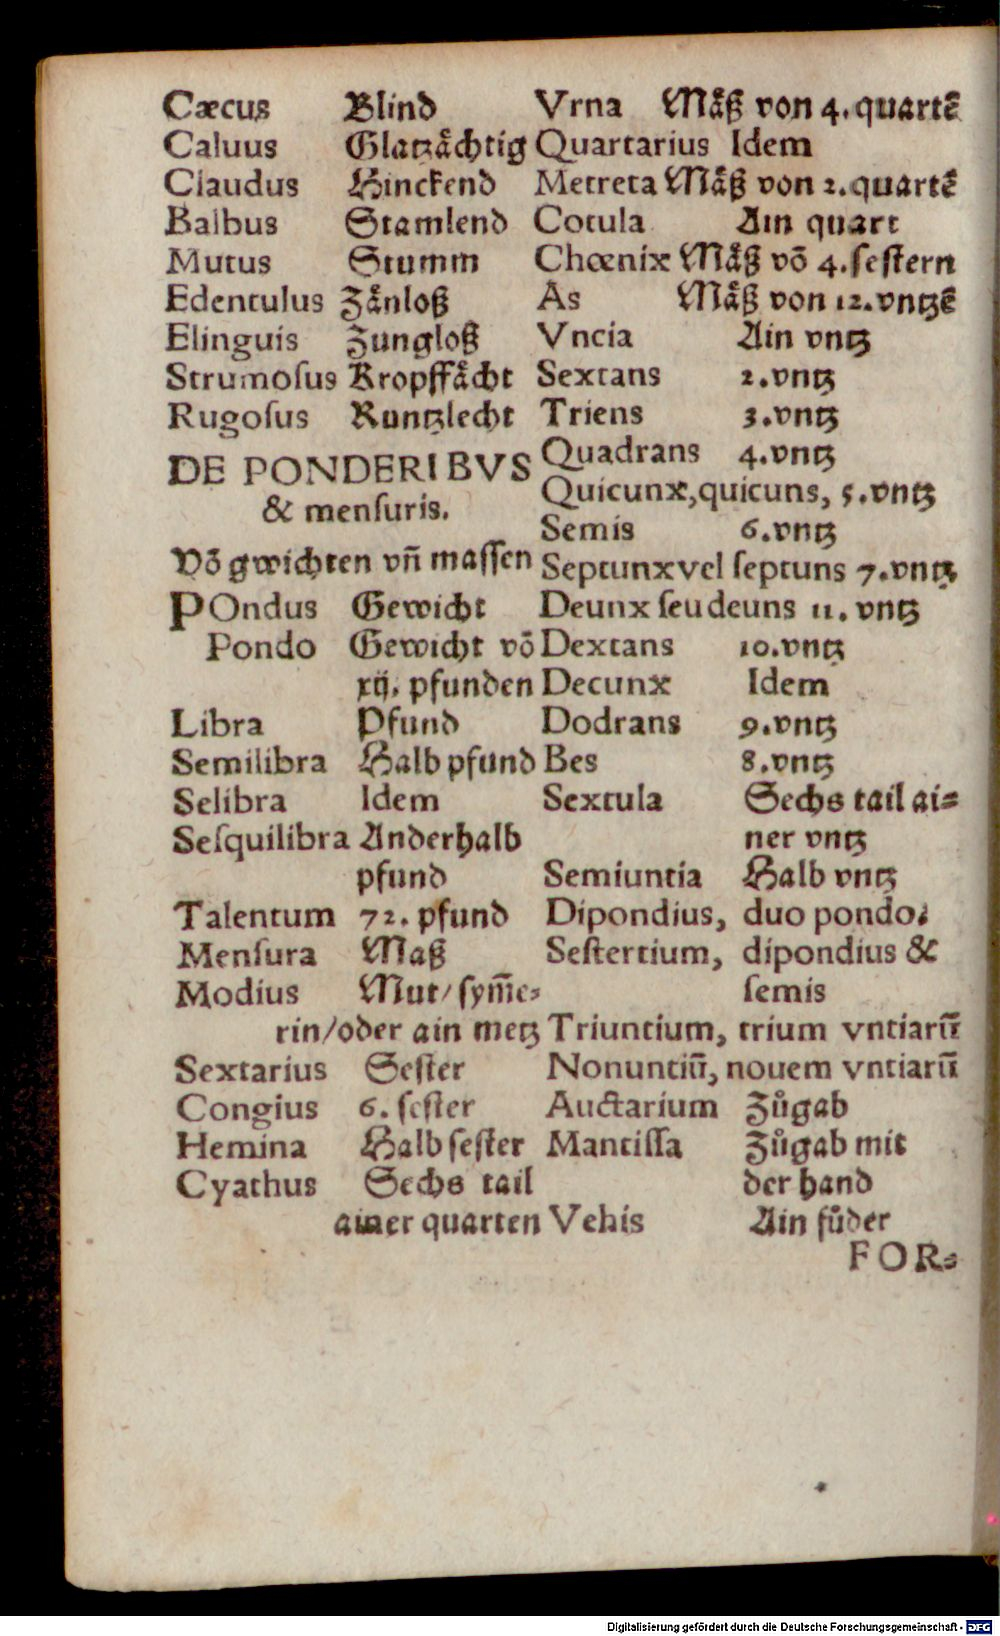 Cæcus Blind
Caluus Glatzaͤchtig
Claudus Hinckend
Balbus Stamlend
Mutus Stumm
Edentulus Zaͤnloß
Elinguis Zungloß
Strumoſus Kropffaͤcht
Rugoſus Runtzlecht
DE PONDERIBVS
& menſuris.
Võ gwichten vñ maſſen
POndus Gewicht
Pondo Gewicht võ
xij. pfunden
Libra Pfund
Semilibra Halb pfund
Selibra Idem
Seſquilibra Anderhalb
pfund
Talentum 72. pfund
Menſura Maß
Modius Mut/ ſym̃e⸗
rin/oder ain metz
Sextarius Seſter
Congius 6. ſeſter
Hemina Halb ſeſter
Cyathus Sechs tail
ainer quarten
Vrna Maͤß von 4. quartẽ
Quartarius Idem
Metreta Maͤß von 2. quartẽ
Cotula Ain quart
Chœnix Maͤß võ 4. ſeſtern
As Maͤß von 12. vntzẽ
Vncia Ain vntz
Sextans 2. vntz
Triens 3. vntz
Quadrans 4. vntz
Quicunx, quicuns, 5. vntz
Semis 6. vntz
Septunx vel ſeptuns 7. vntz
Deunx ſeu deuns 11. vntz
Dextans 10. vntz
Decunx Idem
Dodrans 9. vntz
Bes 8. vntz
Sextula Sechs tail ai⸗
ner vntz
Semiuntia Halb vntz
Dipondius, duo pondo.
Seſtertium, dipondius &
ſemis
Triuntium, trium vntiarũ
Nonuntiũ, nouem vntiarũ
Auctarium Zuͦgab
Mantiſſa Zuͦgab mit
der hand
Vehis Ain fuͦder
FOR⸗
Digitalisierung gefördert durch die Deutsche Forschungsgemeinschaft - DFG